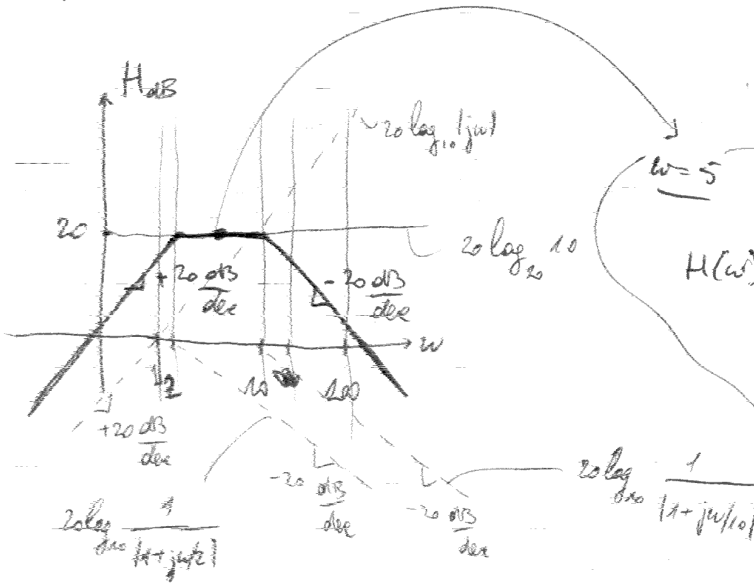 H_dB
20 log_10 |jω|
ω = 5
20
20 log_10 10
+20 dB/dec
-20 dB/dec
H(ω)
ω
2
10
100
+20 dB/dec
-20 dB/dec
-20 dB/dec
20 log_10 1/|1+jω/10|
20 log_10 1/|1+jω/2|